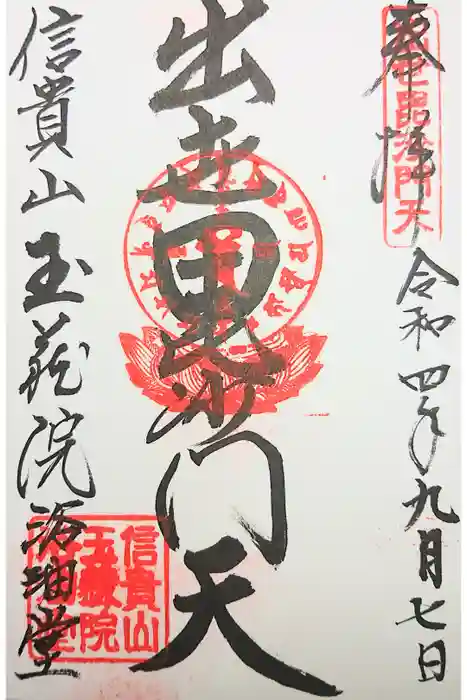 奉拝
令和四年九月七日
出世毘沙門天
出世毘沙門天
信貴山玉蔵院浴油堂
信貴山
玉蔵院
浴油堂